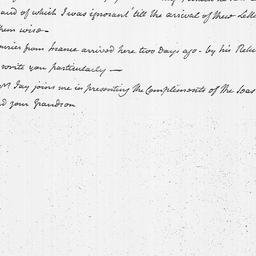 and of which I was ignorant 'till the arrival of these Lette
them wise—
ourier from France arrived here two Days ago— by his Retu
write you particularly—
Mr Jay joins me in presenting the Compliments of the Seas
nd your Grandson